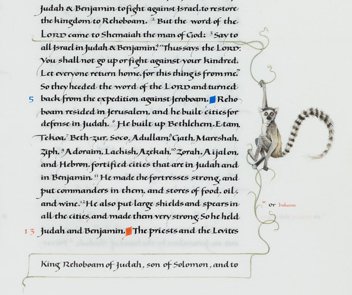 Judah & Benjamin to fight against Israel, to restore
the kingdom to Rehoboam. But the word of the
LORD came to Shemaiah the man of God: Say to
all Israel in Judah & Benjamin, "Thus says the LORD:
You shall not go up or fight against your kindred.
Let everyone return home, for this thing is from me."
So they heeded the word of the LORD and turned
5 back from the expedition against Jeroboam. Reho
boam resided in Jerusalem, and he built cities for
defense in Judah. He built up Bethlehem, Etam,
Tekoa, Beth-zur, Soco, Adullam, Gath, Mareshah,
Ziph, Adoraim, Lachish, Azekah, Zorah, Aijalon,
and Hebron, fortified cities that are in Judah and
in Benjamin. He made the fortresses strong, and
put commanders in them, and stores of food, oil,
and wine. He also put large shields and spears in
all the cities, and made them very strong. So he held
13 Judah and Benjamin. The priests and the Levites
or
King Rehoboam of Judah, son of Solomon, and to